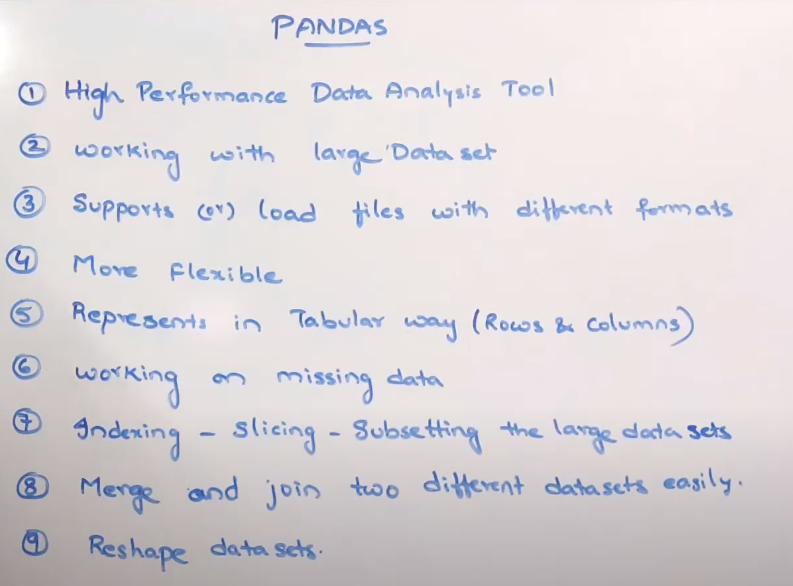 PANDAS
① High Performance Data Analysis Tool
② working with large Data set
③ Supports (or) load files with different formats
④ More Flexible
⑤ Represents in Tabular way (Rows & Columns)
⑥ working on missing data
⑦ Indexing - Slicing - Subsetting the large data sets
⑧ Merge and join two different datasets easily.
⑨ Reshape data sets.